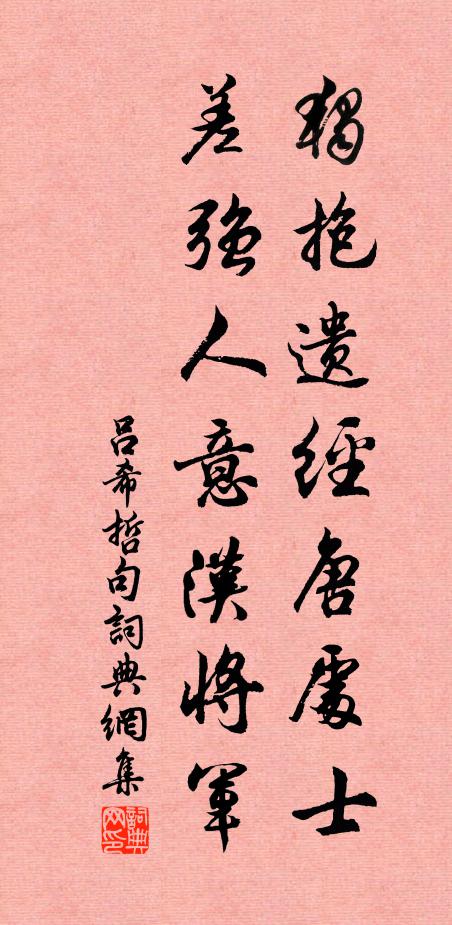 獨抱遺經唐處士
差強人意漢將軍
呂希哲句詞典網集
詞典網印